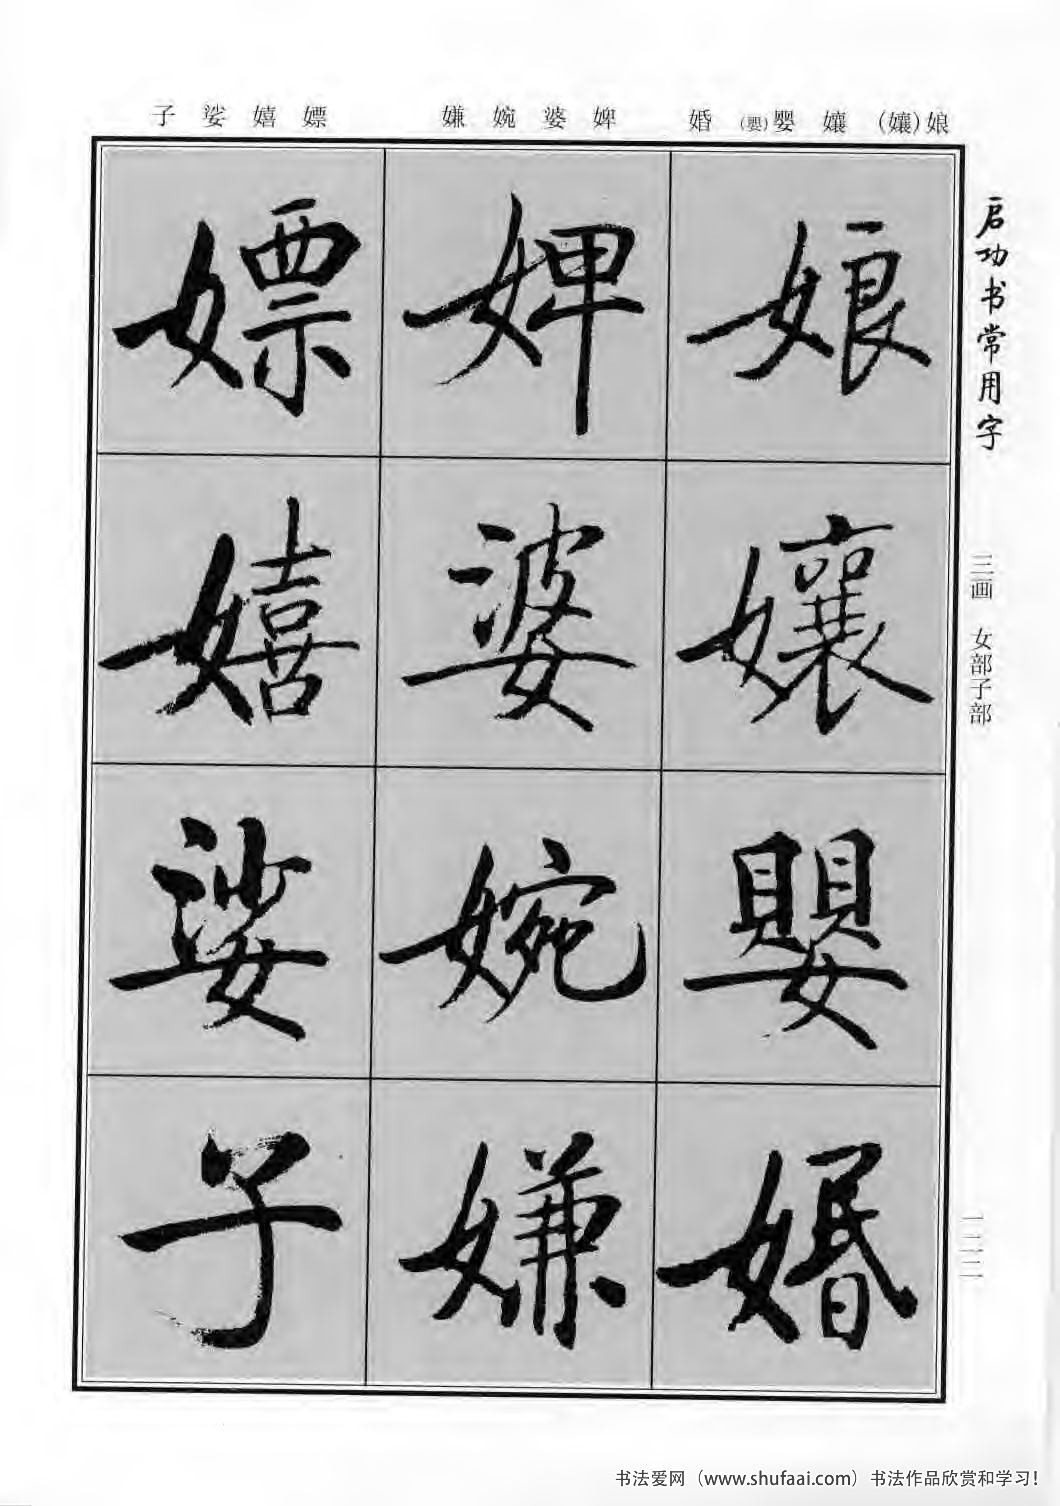 娘(孃) 孃 婴(嬰) 婚
婢 婆 婉 嫌
嫖 嬉 娑 子
启功书常用字
三画 女部子部
一二二
娘
孃
嬰
婚
婢
婆
婉
嫌
嫖
嬉
娑
子
书法爱网（www.shufaai.com）书法作品欣赏和学习！